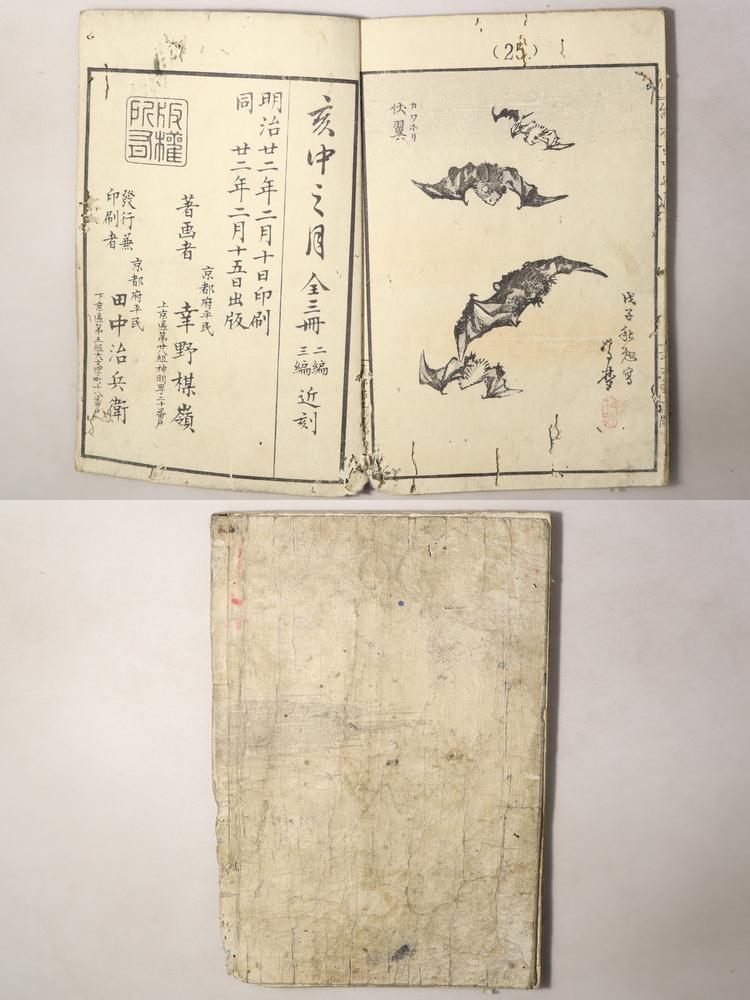 (25)
伏翼
カワホリ
戊子秋
亥中之月 全三冊 二編 三編 近刻
明治廿二年二月十日印刷
同 廿二年二月十五日出版
著画者
京都府平民
上京區第廿八組
幸野楳嶺
發行兼
印刷者
京都府平民
下京區第五組
田中治兵衛
版權
所有